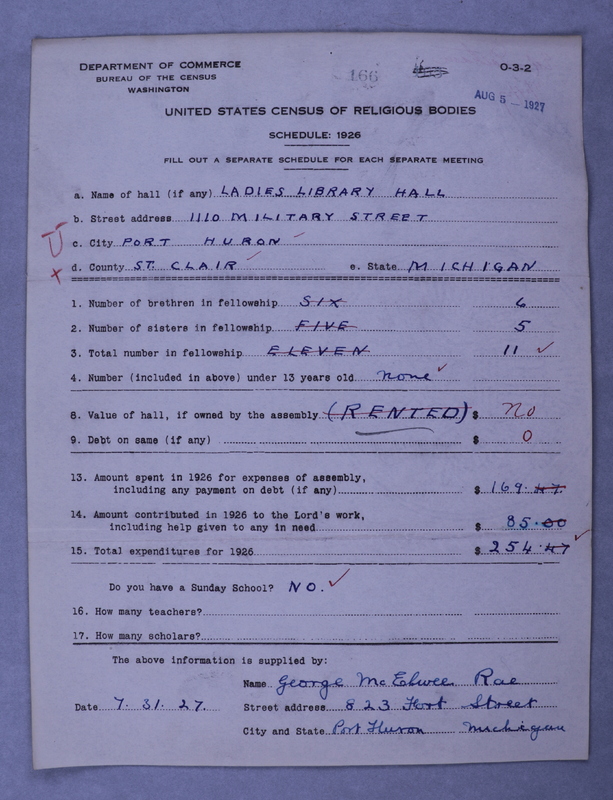 DEPARTMENT OF COMMERCE
BUREAU OF THE CENSUS
WASHINGTON
166
O-3-2
AUG 5 - 1927
UNITED STATES CENSUS OF RELIGIOUS BODIES
SCHEDULE: 1926
FILL OUT A SEPARATE SCHEDULE FOR EACH SEPARATE MEETING
a. Name of hall (if any) LADIES LIBRARY HALL
b. Street address 1110 MILITARY STREET
c. City PORT HURON
d. County ST. CLAIR e. State MICHIGAN
1. Number of brethren in fellowship SIX 6
2. Number of sisters in fellowship FIVE 5
3. Total number in fellowship ELEVEN 11
4. Number (included in above) under 13 years old none
8. Value of hall, if owned by the assembly (RENTED) $ no
9. Debt on same (if any) $ 0
13. Amount spent in 1926 for expenses of assembly,
including any payment on debt (if any) $ 169.47
14. Amount contributed in 1926 to the Lord's work,
including help given to any in need $ 85.00
15. Total expenditures for 1926 $ 254.47
Do you have a Sunday School? NO.
16. How many teachers?
17. How many scholars?
The above information is supplied by:
Name George McElwee Rae
Date 7.31.27. Street address 823 Fort Street
City and State Port Huron Michigan